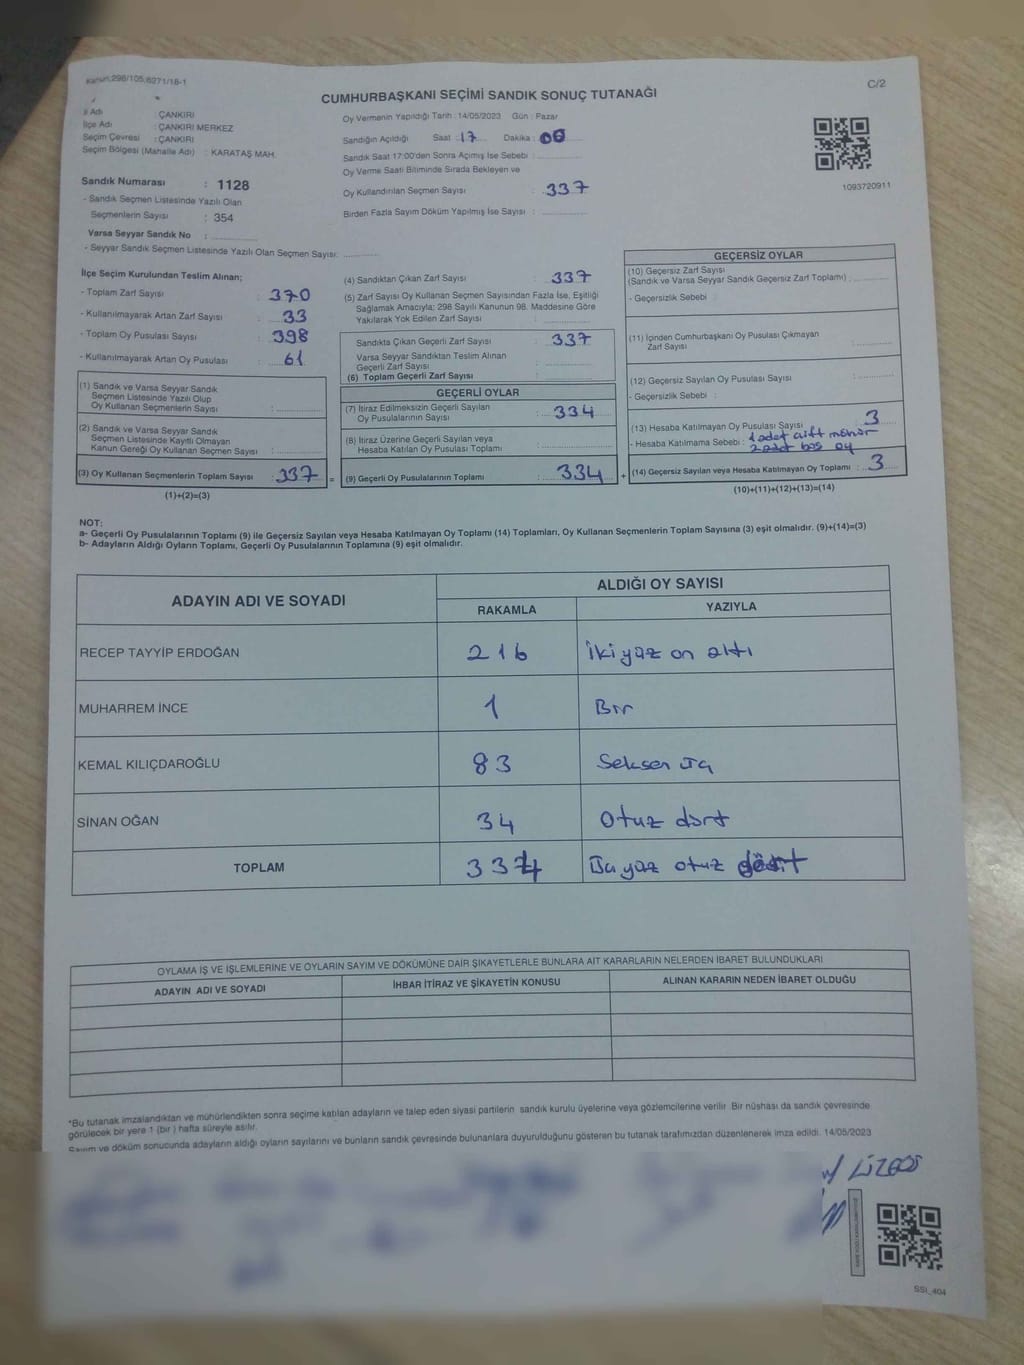 Kanun:298/105,6271/18-1
C/2
CUMHURBAŞKANI SEÇİMİ SANDIK SONUÇ TUTANAĞI
İl Adı : ÇANKIRI
İlçe Adı : ÇANKIRI MERKEZ
Seçim Çevresi : ÇANKIRI
Seçim Bölgesi (Mahalle Adı) : KARATAŞ MAH.
Oy Vermenin Yapıldığı Tarih : 14/05/2023 Gün : Pazar
Sandığın Açıldığı Saat : 17 Dakika : 00
Sandık Saat 17:00'den Sonra Açımış İse Sebebi :
Oy Verme Saati Bitiminde Sırada Bekleyen ve
Oy Kullandırılan Seçmen Sayısı : 337
Birden Fazla Sayım Döküm Yapılmış İse Sayısı :
1093720911
Sandık Numarası : 1128
- Sandık Seçmen Listesinde Yazılı Olan
Seçmenlerin Sayısı : 354
Varsa Seyyar Sandık No :
- Seyyar Sandık Seçmen Listesinde Yazılı Olan Seçmen Sayısı:
İlçe Seçim Kurulundan Teslim Alınan;
- Toplam Zarf Sayısı : 370
- Kullanılmayarak Artan Zarf Sayısı : 33
- Toplam Oy Pusulası Sayısı : 398
- Kullanılmayarak Artan Oy Pusulası : 61
(1) Sandık ve Varsa Seyyar Sandık
Seçmen Listesinde Yazılı Olup
Oy Kullanan Seçmenlerin Sayısı :
(2) Sandık ve Varsa Seyyar Sandık
Seçmen Listesinde Kayıtlı Olmayan
Kanun Gereği Oy Kullanan Seçmen Sayısı :
(3) Oy Kullanan Seçmenlerin Toplam Sayısı : 337 =
(1)+(2)=(3)
(4) Sandıktan Çıkan Zarf Sayısı : 337
(5) Zarf Sayısı Oy Kullanan Seçmen Sayısından Fazla İse, Eşitliği
Sağlamak Amacıyla; 298 Sayılı Kanunun 98. Maddesine Göre
Yakılarak Yok Edilen Zarf Sayısı :
Sandıkta Çıkan Geçerli Zarf Sayısı : 337
Varsa Seyyar Sandıktan Teslim Alınan
Geçerli Zarf Sayısı :
(6) Toplam Geçerli Zarf Sayısı :
GEÇERLİ OYLAR
(7) İtiraz Edilmeksizin Geçerli Sayılan
Oy Pusulalarının Sayısı : 334
(8) İtiraz Üzerine Geçerli Sayılan veya
Hesaba Katılan Oy Pusulası Toplamı :
(9) Geçerli Oy Pusulalarının Toplamı : 334 +
GEÇERSİZ OYLAR
(10) Geçersiz Zarf Sayısı
(Sandık ve Varsa Seyyar Sandık Geçersiz Zarf Toplamı) :
- Geçersizlik Sebebi :
(11) İçinden Cumhurbaşkanı Oy Pusulası Çıkmayan
Zarf Sayısı :
(12) Geçersiz Sayılan Oy Pusulası Sayısı :
- Geçersizlik Sebebi :
(13) Hesaba Katılmayan Oy Pusulası Sayısı : 3
- Hesaba Katılmama Sebebi : 1 adet çift mühür
2 adet boş oy
(14) Geçersiz Sayılan veya Hesaba Katılmayan Oy Toplamı : 3
(10)+(11)+(12)+(13)=(14)
NOT:
a- Geçerli Oy Pusulalarının Toplamı (9) ile Geçersiz Sayılan veya Hesaba Katılmayan Oy Toplamı (14) Toplamları, Oy Kullanan Seçmenlerin Toplam Sayısına (3) eşit olmalıdır. (9)+(14)=(3)
b- Adayların Aldığı Oyların Toplamı, Geçerli Oy Pusulalarının Toplamına (9) eşit olmalıdır.
ADAYIN ADI VE SOYADI ALDIĞI OY SAYISI
RAKAMLA YAZIYLA
RECEP TAYYİP ERDOĞAN 216 İkiyüz on altı
MUHARREM İNCE 1 Bir
KEMAL KILIÇDAROĞLU 83 Seksen üç
SİNAN OĞAN 34 Otuz dört
TOPLAM 334 Üçyüz otuz dört
OYLAMA İŞ VE İŞLEMLERİNE VE OYLARIN SAYIM VE DÖKÜMÜNE DAİR ŞİKAYETLERLE BUNLARA AİT KARARLARIN NELERDEN İBARET BULUNDUKLARI
ADAYIN ADI VE SOYADI İHBAR İTİRAZ VE ŞİKAYETİN KONUSU ALINAN KARARIN NEDEN İBARET OLDUĞU
*Bu tutanak imzalandıktan ve mühürlendikten sonra seçime katılan adayların ve talep eden siyasi partilerin sandık kurulu üyelerine veya gözlemcilerine verilir. Bir nüshası da sandık çevresinde
görülecek bir yere 1 (bir) hafta süreyle asılır.
Sayım ve döküm sonucunda adayların aldığı oyların sayılarını ve bunların sandık çevresinde bulunanlara duyurulduğunu gösteren bu tutanak tarafımızdan düzenlenerek imza edildi. 14/05/2023
SSI_404